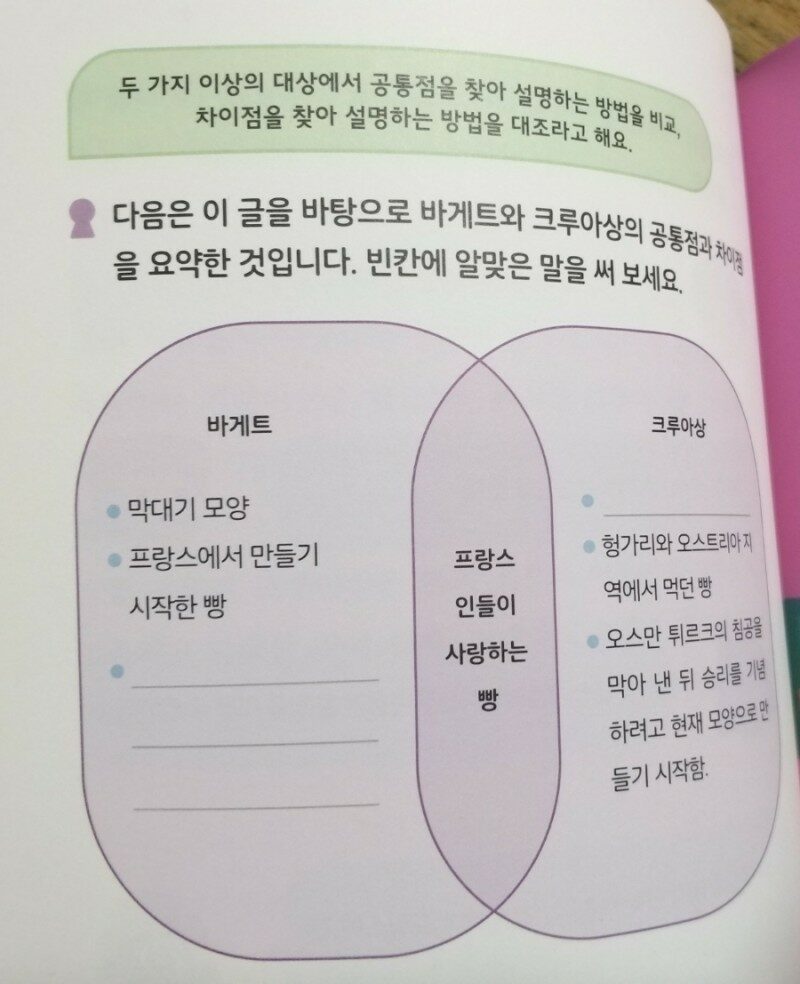 두 가지 이상의 대상에서 공통점을 찾아 설명하는 방법을 비교,
차이점을 찾아 설명하는 방법을 대조라고 해요.
다음은 이 글을 바탕으로 바게트와 크루아상의 공통점과 차이점
을 요약한 것입니다. 빈칸에 알맞은 말을 써 보세요.
바게트
막대기 모양
프랑스에서 만들기
시작한 빵
프랑스
인들이
사랑하는
빵
크루아상
헝가리와 오스트리아 지
역에서 먹던 빵
오스만 튀르크의 침공을
막아 낸 뒤 승리를 기념
하려고 현재 모양으로 만
들기 시작함.